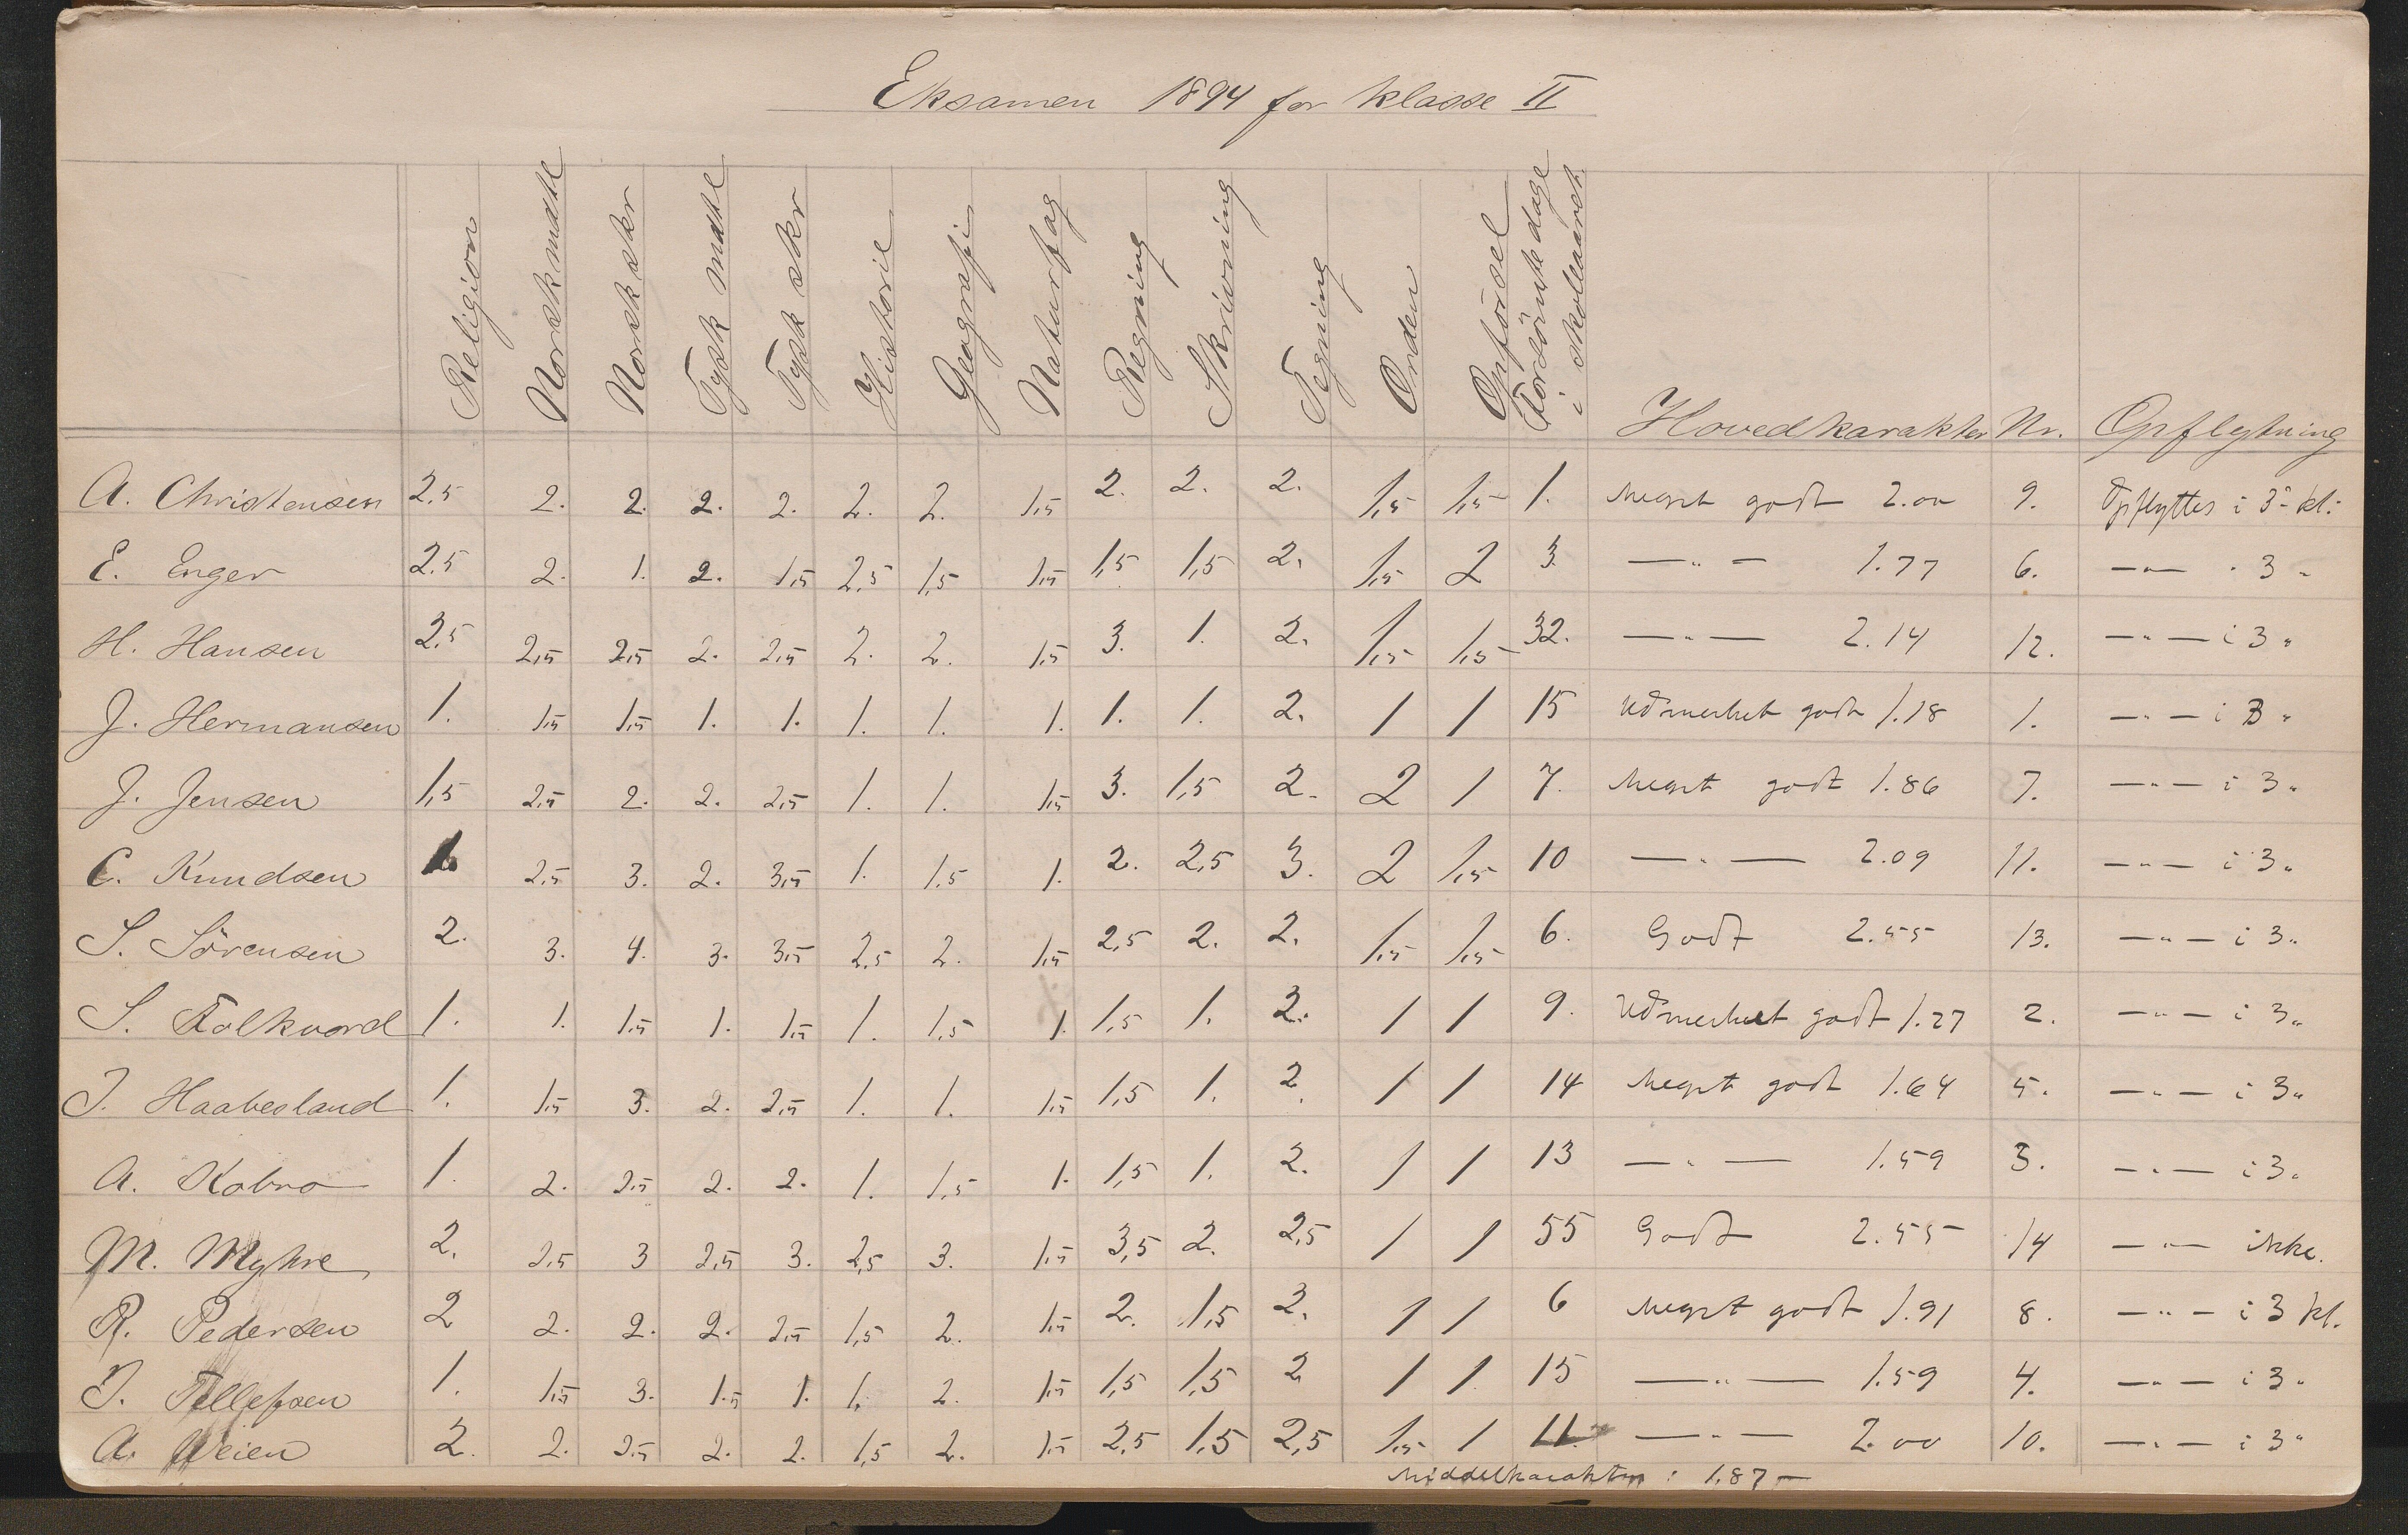 Eksamen 1894 for klasse II
Religion Norsk mdtl Norsk skr Tysk mdtl Tysk skr Historie Geografi Naturfag Regning Skrivning Tegning Orden Opförsel Forsömte dage i skoleaaret. Hovedkarakter Nr. Opflytning
A. Christensen 2,5 2. 2. 2. 2. 2. 2. 1,5 2. 2. 2. 1,5 1,5 1. Meget godt 2.00 9. Opflyttes i 3- kl:
E. Enger 2.5 2. 1. 2. 1,5 2,5 1,5 1,5 1,5 1,5 2. 1,5 2 3. —„— 1.77 6. —„— 3 „
H. Hansen 2,5 2,5 2,5 2. 2,5 2. 2. 1,5 3. 1. 2. 1,5 1,5 32. —„— 2.14 12. —„— i 3 „
J. Hermansen 1. 1,5 1,5 1. 1. 1. 1. 1. 1. 1. 2. 1 1 15 Udmerket godt 1.18 1. —„— i 3 „
J. Jensen 1,5 2,5 2. 2. 2,5 1. 1. 1,5 3. 1,5 2. 2 1 7. Meget godt 1.86 7. —„— i 3 „
C. Knudsen 1. 2,5 3. 2. 3,5 1. 1,5 1. 2. 2,5 3. 2 1,5 10 —„— 2.09 11. —„— i 3 „
S. Sörensen 2. 3. 4. 3. 3,5 2,5 2. 1,5 2,5 2. 2. 1,5 1,5 6. Godt 2.55 13. —„— i 3 „
S. Folkvord 1. 1. 1,5 1. 1,5 1. 1,5 1. 1,5 1. 2. 1 1 9. Udmerket godt 1.27 2. —„— i 3 „
T. Haabesland 1. 1,5 3. 2. 2,5 1. 1. 1,5 1,5 1. 2. 1 1 14 Meget godt 1.64 5. —„— i 3 „
A. Kobro 1. 2. 2,5 2. 2. 1. 1,5 1. 1,5 1. 2. 1 1 13 —„— 1.59 3. —„— i 3 „
M. Myhre 2. 2,5 3 2,5 3. 2,5 3. 1,5 3,5 2. 2,5 1 1 55 Godt 2.55 14 —„— ikke.
R. Pedersen 2 2. 2. 2. 2,5 1,5 2. 1,5 2. 1,5 2. 1 1 6 Meget godt 1.91 8. —„— i 3 kl.
T. Tellefsen 1. 1,5 3. 1.5 1. 1. 2. 1,5 1,5 1,5 2 1 1. 15 —„— 1.59 4. —„— i 3 „
A. Weien 2. 2. 2,5 2. 2. 1,5 2. 1,5 2,5 1,5 2,5 1,5 1 11. —„— 2.00 10. —„— i 3 „
Middelkarakter : 1.87 —